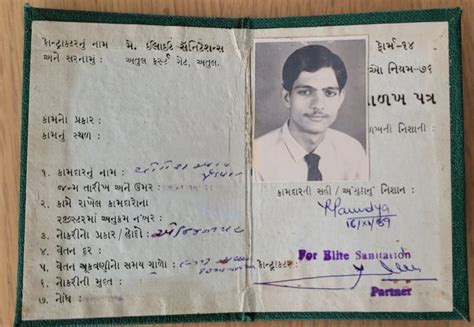 કોન્ટ્રાક્ટરનું નામ મે. ઈલાઈટ સૅનિટેશન્સ
અને સરનામું : અતુલ ફર્સ્ટ ગેટ, અતુલ.
કામનો પ્રકાર :
કામનું સ્થળ :
૧. કામદારનું નામ :
જન્મ તારીખ અને ઉંમર :
૨. કામે રાખેલ કામદારોના
રજીસ્ટરમાં અનુક્રમ નંબર :
૩. નોકરીનો પ્રકાર / હોદ્દો :
૪. વેતન દર :
૫. વેતન ચૂકવણીનો સમય ગાળો :
૬. નોકરીની મુદ્દત :
૭. નોંધ :
ફોર્મ-૧૪
ઓ નિયમ-૭૬
ળખ પત્ર
ળખની નિશાની :
કામદારની સહી / અંગુઠાનું નિશાન :
16/XI/89
For Elite Sanitation
કોન્ટ્રાક્ટર
Partner